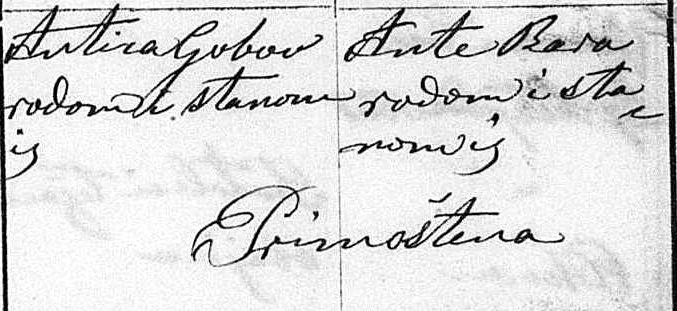 Antica Gobov
rodom i stanom
iz
Ante Bara
rodom i sta-
nom iz
Primoštena